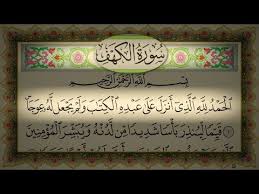 سُورَةُ الكَهْفِ
بِسْمِ اللَّهِ الرَّحْمَٰنِ الرَّحِيمِ
الْحَمْدُ لِلَّهِ الَّذِي أَنزَلَ عَلَىٰ عَبْدِهِ الْكِتَٰبَ وَلَمْ يَجْعَل لَّهُ عِوَجَا
١ قَيِّمًا لِّيُنذِرَ بَأْسًا شَدِيدًا مِّن لَّدُنْهُ وَيُبَشِّرَ الْمُؤْمِنِينَ